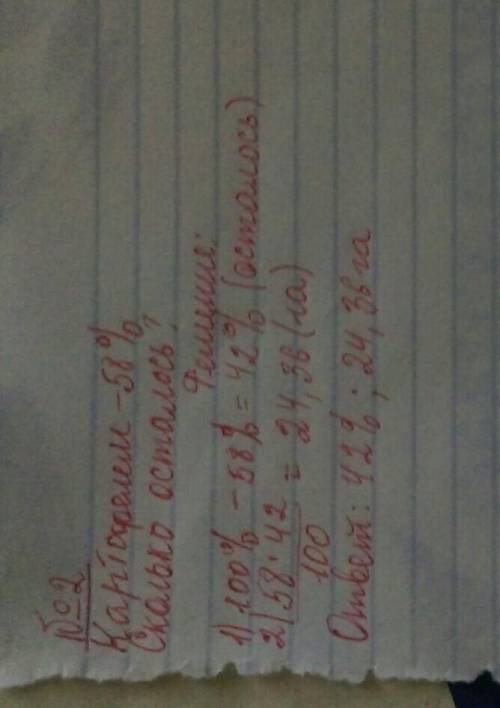 №2
Картофелем - 58%,
Сколько осталось,
Решение:
1) 100% - 58% = 42% (осталось)
2) 58 · 42 = 24,36 (га)
100
Ответ: 42% ; 24,36 га